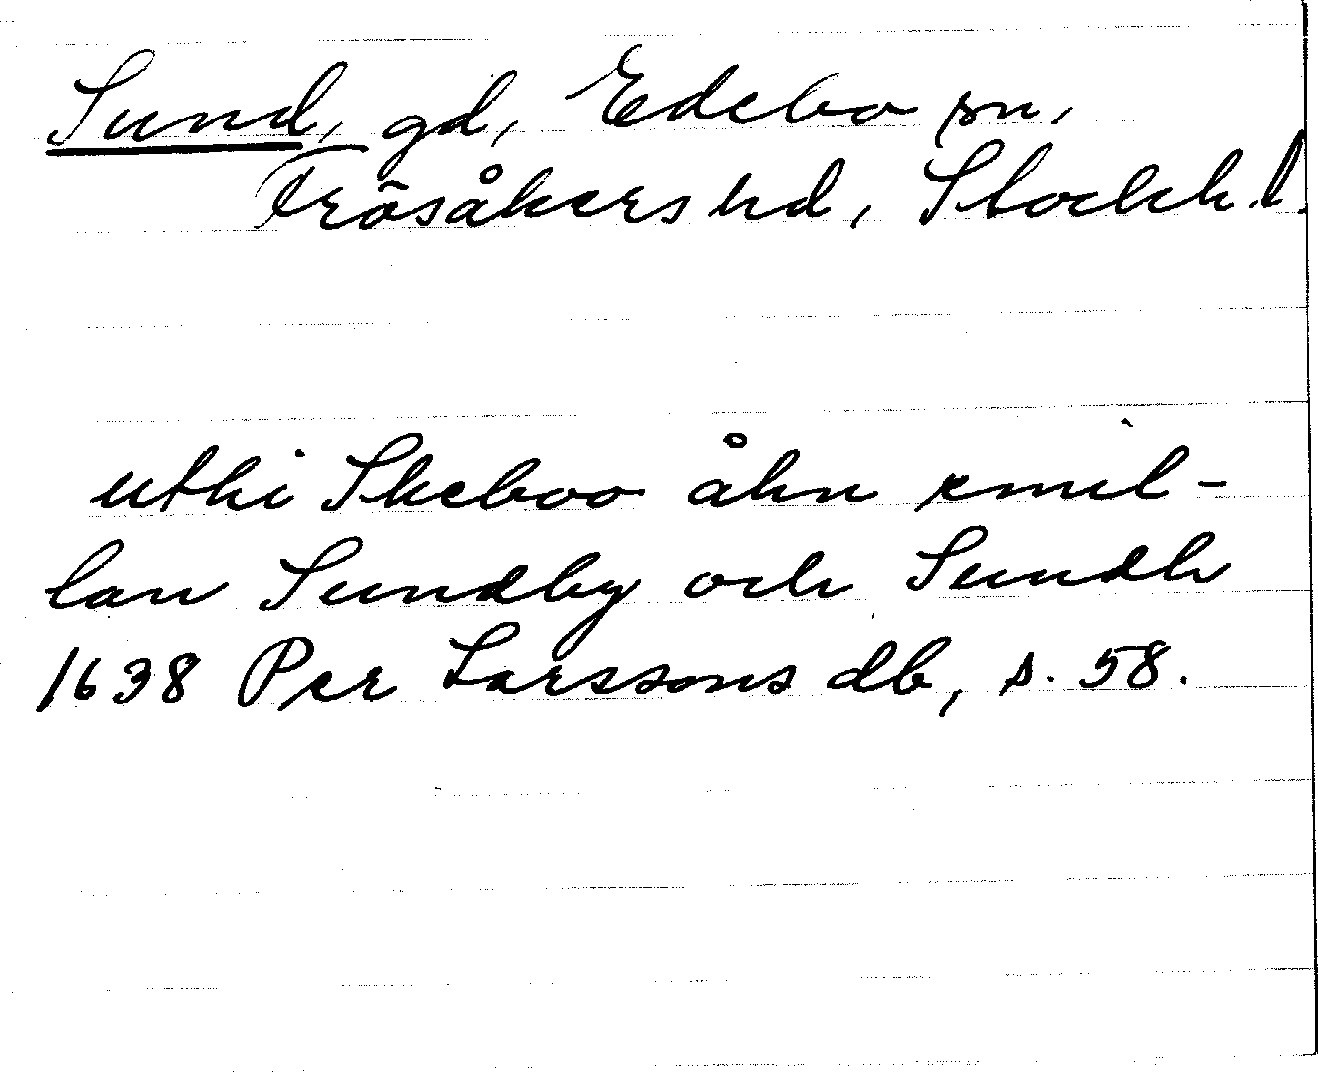 Sund, gd, Edebo sn,
Frösåkers hd, Stockh. l.
uthi Skeboo åhn emil-
lan Sundby och Sundh
1638 Per Larssons db, s. 58.